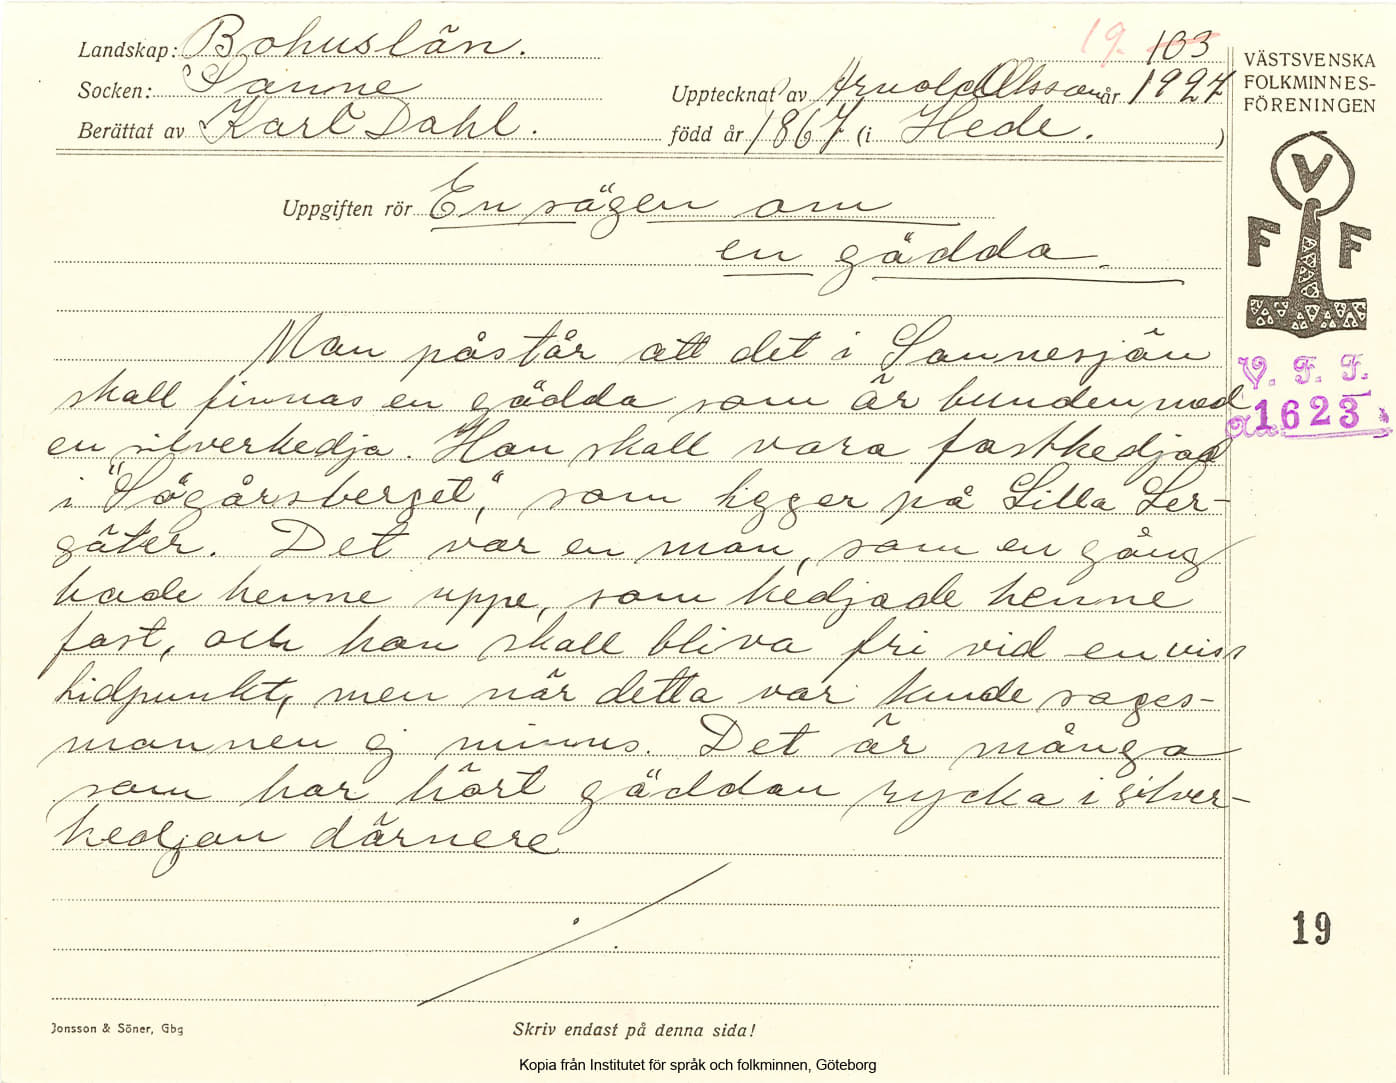 Landskap: Bohuslän.
19. 103
Socken: Sanne
Upptecknat av Arnold Olsson år 1927
Berättat av Karl Dahl.
född år 1867 (i Hede. )
VÄSTSVENSKA
FOLKMINNES-
FÖRENINGEN
V
F F
Uppgiften rör En sägen om
en gädda.
V. F. F.
1623
Man påstår att det i Sannesjön
skall finnas en gädda som är bunden med
en silverkedja. Hon skall vara fastkedjad
i "Högårsberget", som ligger på Lilla Ler-
gäter. Det var en man, som en gång
hade henne uppe, som kedjade henne
fast, och hon skall bliva fri vid en viss
tidpunkt, men när detta var kunde sages-
mannen ej minnas. Det är många
som har hört gäddan rycka i silver-
kedjan därnere
19
Jonsson & Söner, Gbg
Skriv endast på denna sida!
Kopia från Institutet för språk och folkminnen, Göteborg